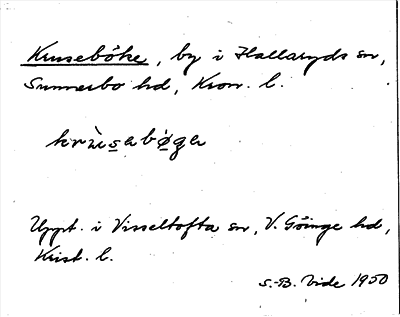 Kruseböke, by i Hallaryds sn,
Sunnerbo hd, Kron. l.
krùsabøga
Uppt. i Visseltofta sn, V. Göinge hd,
Krist. l.
S.-B. Vide 1950